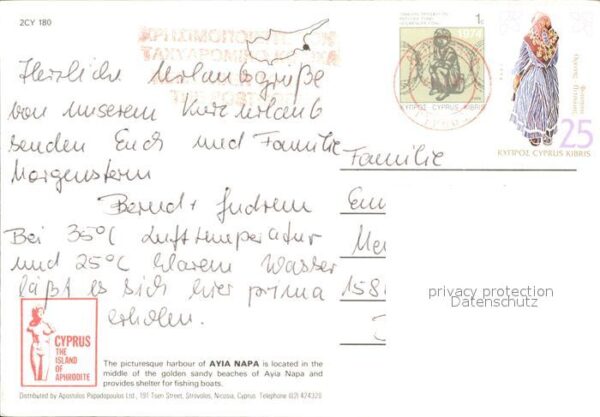 2CY 180
ΤΑΧΥΔΡΟΜΙΚΟ
THE POST
1c
1974
ΚΥΠΡΟΣ CYPRUS KIBRIS
25
ΚΥΠΡΟΣ CYPRUS KIBRIS
Herzliche Urlaubsgrüße
von unserem Kurzurlaub
senden Euch und Familie
Morgenstern
Bernd + Gudrun
Bei 35°C Lufttemperatur
und 25°C klarem Wasser
läßt es sich hier prima
erholen.
Familie
158
privacy protection
Datenschutz
CYPRUS
THE
ISLAND
OF
APHRODITE
The picturesque harbour of AYIA NAPA is located in the
middle of the golden sandy beaches of Ayia Napa and
provides shelter for fishing boats.
Distributed by Apostolos Papadopoulos Ltd., 191 Tseri Street, Strovolos, Nicosia, Cyprus Telephone (02) 424329